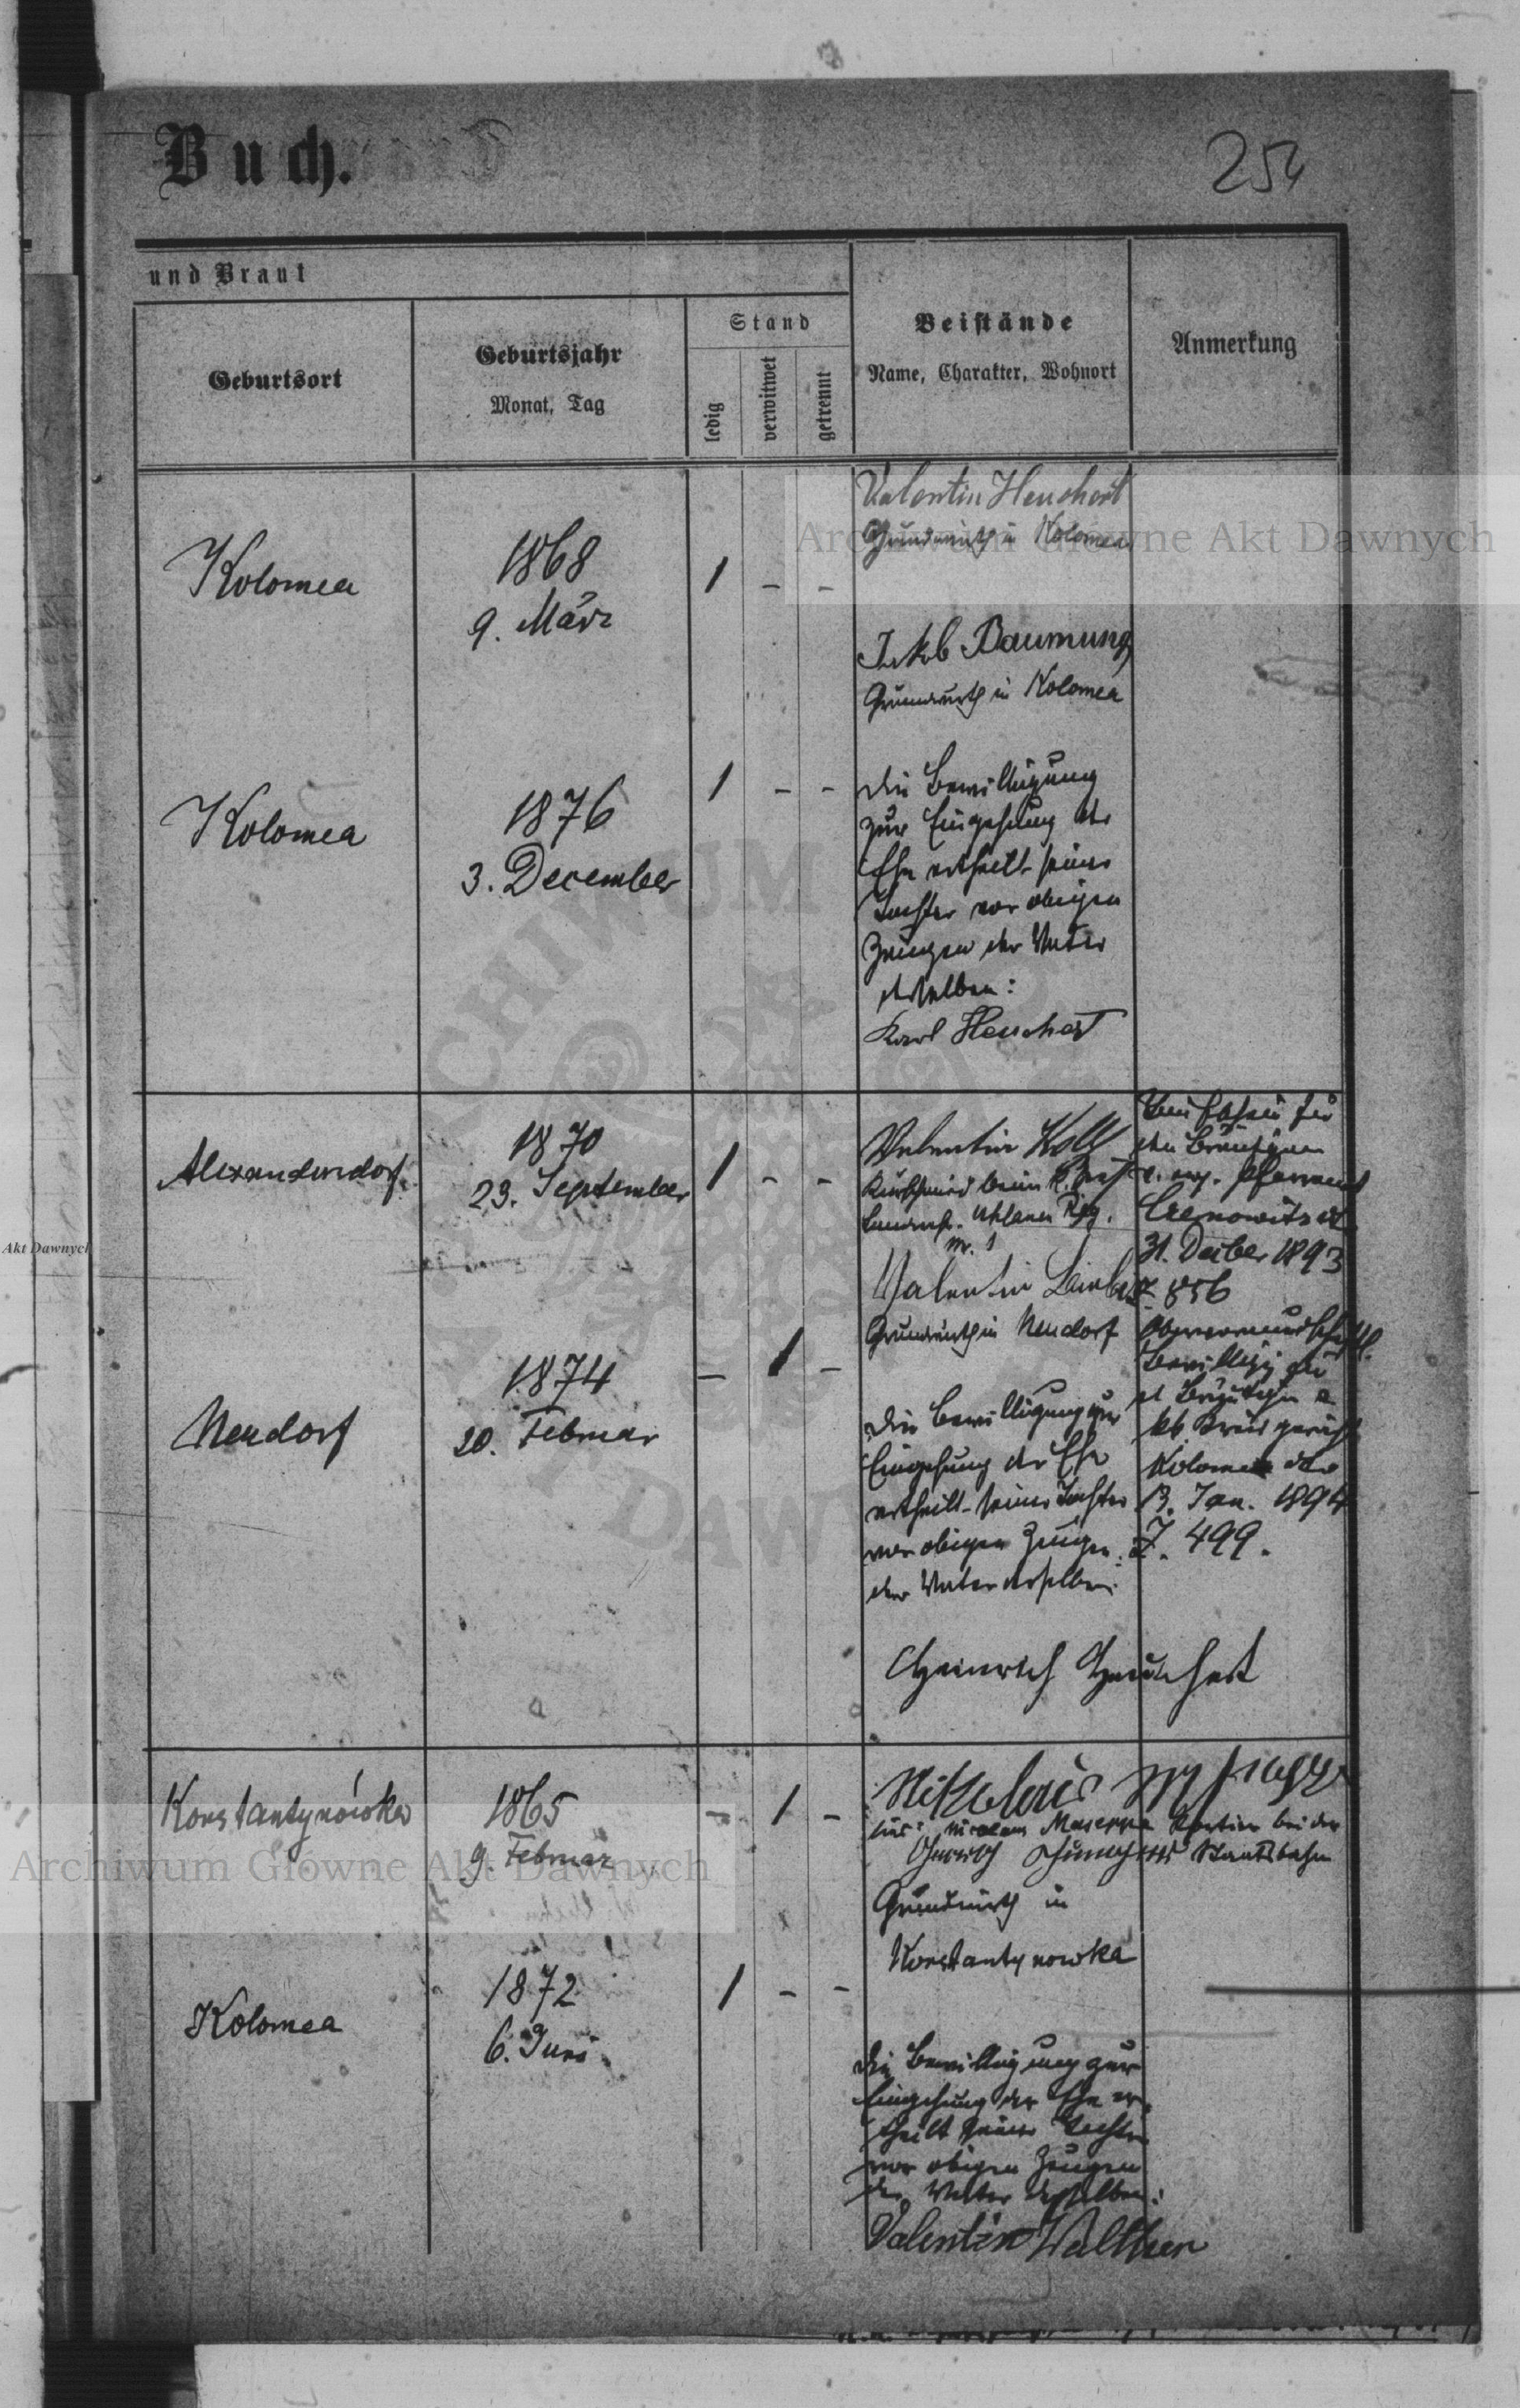 Buch.
254
und Braut
Geburtsort
Geburtsjahr
Monat, Tag
Stand
ledig
verwitwet
getrennt
Beistände
Name, Charakter, Wohnort
Anmerkung
Kolomea
1868
9. März
1 - -
Valentin Heuchert
Grundwirth in Kolomea
Jakob Baumung
Grundwirth in Kolomea
Kolomea
1876
3. December
1 - -
Die Bewilligung
zur Eingehung der
Ehe ertheilt seiner
Tochter vor obigen
Zeugen der Vater
derselben:
Karl Heuchert
Alexanderdorf
1870
23. September
1 - -
Valentin Koll
Kurschmied beim
Uhlanen Reg.
Nr. 1
Valentin
Grundwirth in Neudorf
Neudorf
1874
20. Februar
- 1 -
Die Bewilligung zur
Eingehung der Ehe
ertheilt seiner Tochter
vor obigen Zeugen
der Vater derselben:
Heinrich Heuchert
für
den Bräutigam
ev. Pfarramt
Czernowitz
31. 1893
Z 856
Bewillig für
Kolomea
13. Jan. 1894
Z. 499.
Konstantynówka
1865
9. Februar
- 1 -
Nikolaus
Portier bei der
Staatsbahn
Grundwirth in
Konstantynowka
Kolomea
1872
6. Juni
1 - -
Die Bewilligung zur
Eingehung der Ehe er-
theilt seiner Tochter
vor obigen Zeugen
der Vater derselben:
Valentin Walther
Archiwum Główne Akt Dawnych
Archiwum Główne Akt Dawnych
Akt Dawnych